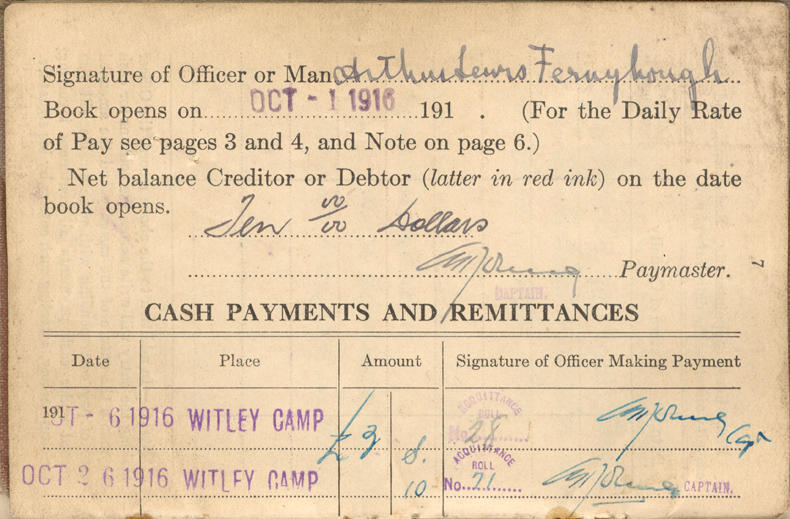 Signature of Officer or Man Arthur Lewis Fernyhough
Book opens on OCT - 1 1916 191 . (For the Daily Rate
of Pay see pages 3 and 4, and Note on page 6.)
Net balance Creditor or Debtor (latter in red ink) on the date
book opens.
Ten 00/00 Dollars
Paymaster.
CAPTAIN.
7
CASH PAYMENTS AND REMITTANCES
Date Place Amount Signature of Officer Making Payment
191
CT - 6 1916 WITLEY CAMP £3 ACQUITTANCE ROLL No. 28 Capt
8.
OCT 26 1916 WITLEY CAMP 10 ACQUITTANCE ROLL No. 71 CAPTAIN.